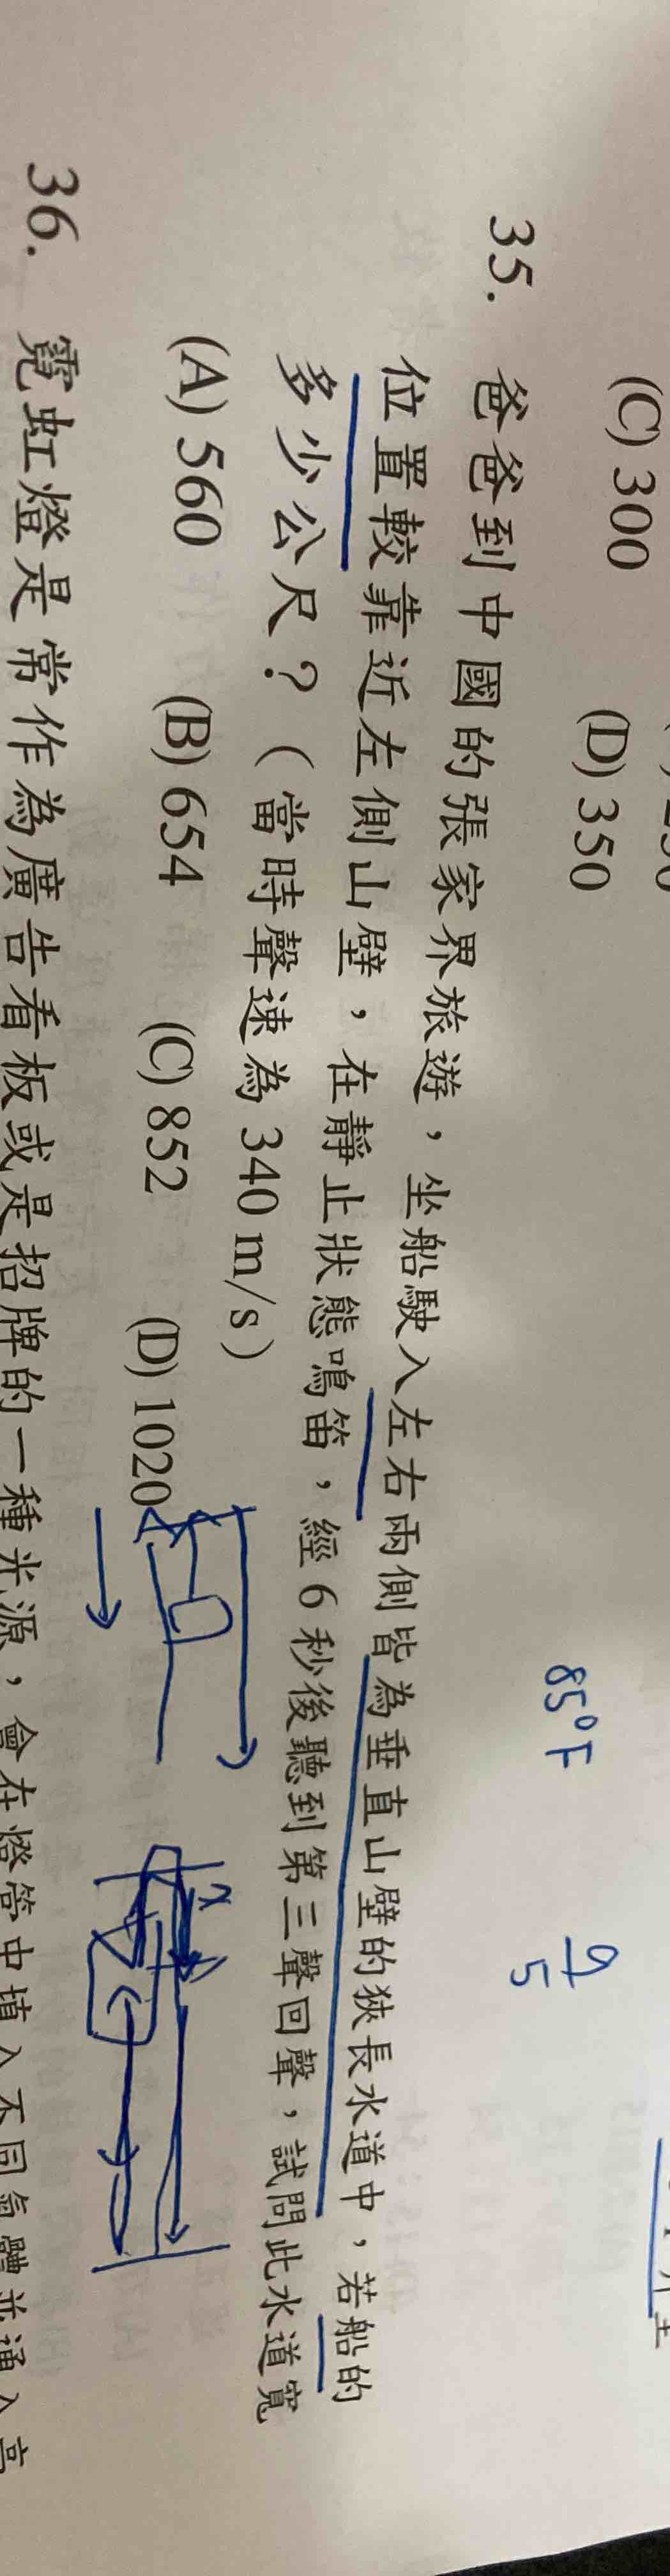 (C) 300 (D) 350
35. 爸爸到中國的張家界旅遊，坐船駛入左右兩側皆為垂直山壁的狹長水道中，若船的
位置較靠近左側山壁，在靜止狀態鳴笛，經 6 秒後聽到第三聲回聲，試問此水道寬
多少公尺？（當時聲速為 340 m/s）
(A) 560 (B) 654 (C) 852 (D) 1020
36. 霓虹燈是常作為廣告看板或是招牌的一種光源，會在燈管中填入不同氣體並通入高
85°F
9
5